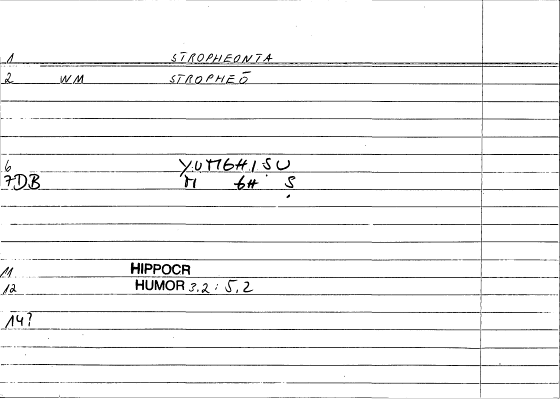 1 STROPHEONTA
2 WM STROPHEŌ
6 YUMGHISU
7DB M GH S
11 HIPPOCR
12 HUMOR 3.2 : 5,2
14?